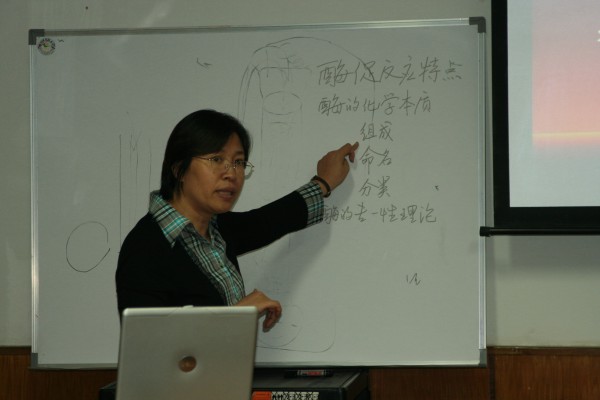 酶促反应特点
酶的化学本质
组成
命名
分类
酶的专一性理论